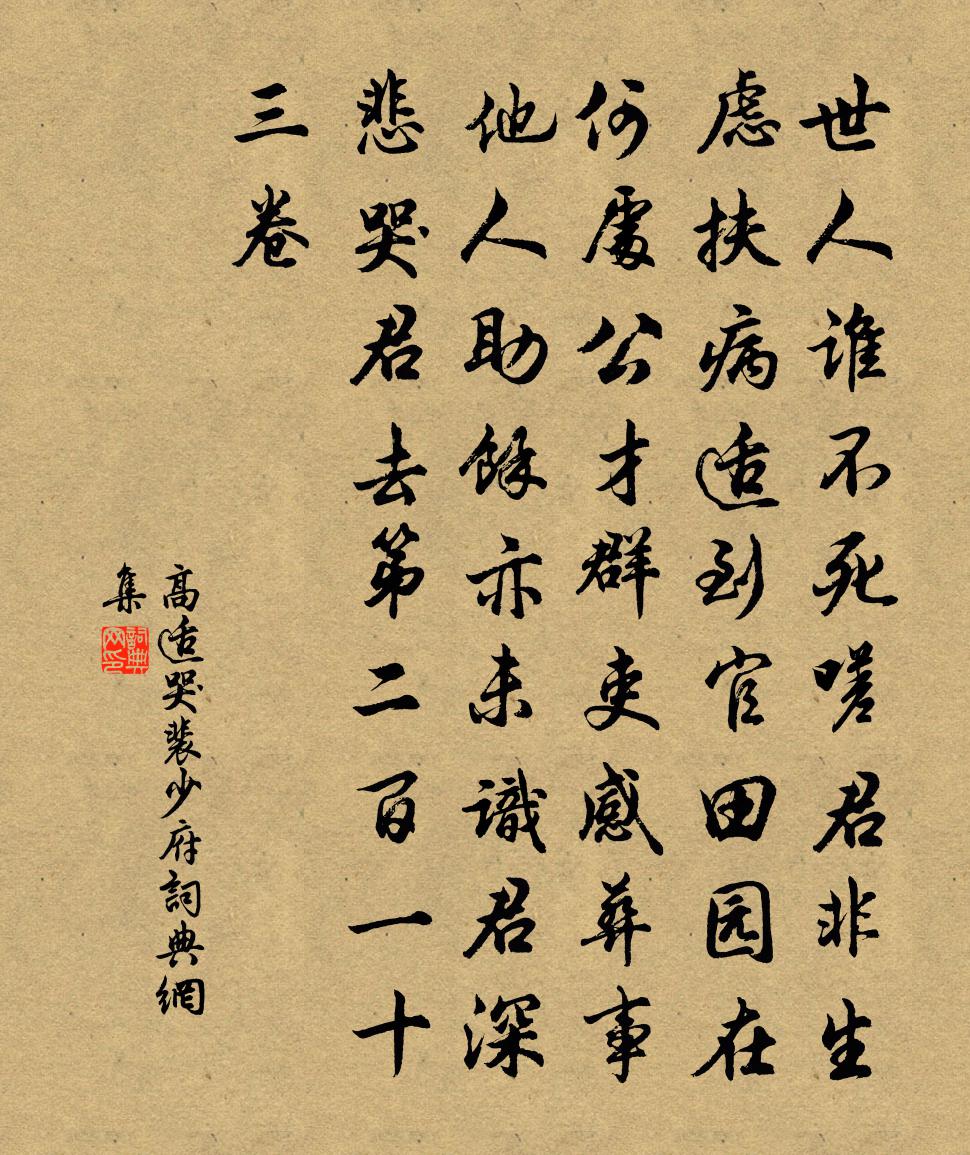 世人谁不死嗟君非生
虑扶病适到官田园在
何處公才群吏感葬事
他人助餘亦未識君深
悲哭君去第二百一十
三卷
高适哭裴少府詞典網
集
詞典网印